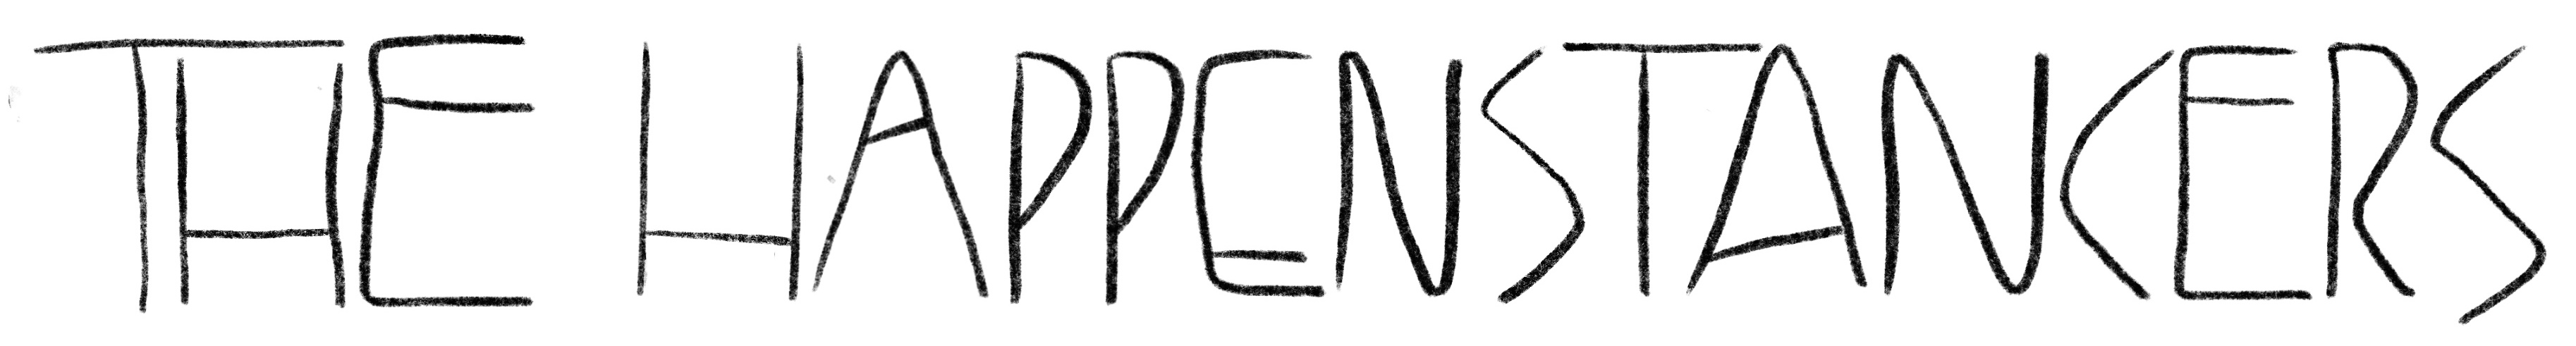 THE HAPPENSTANCERS